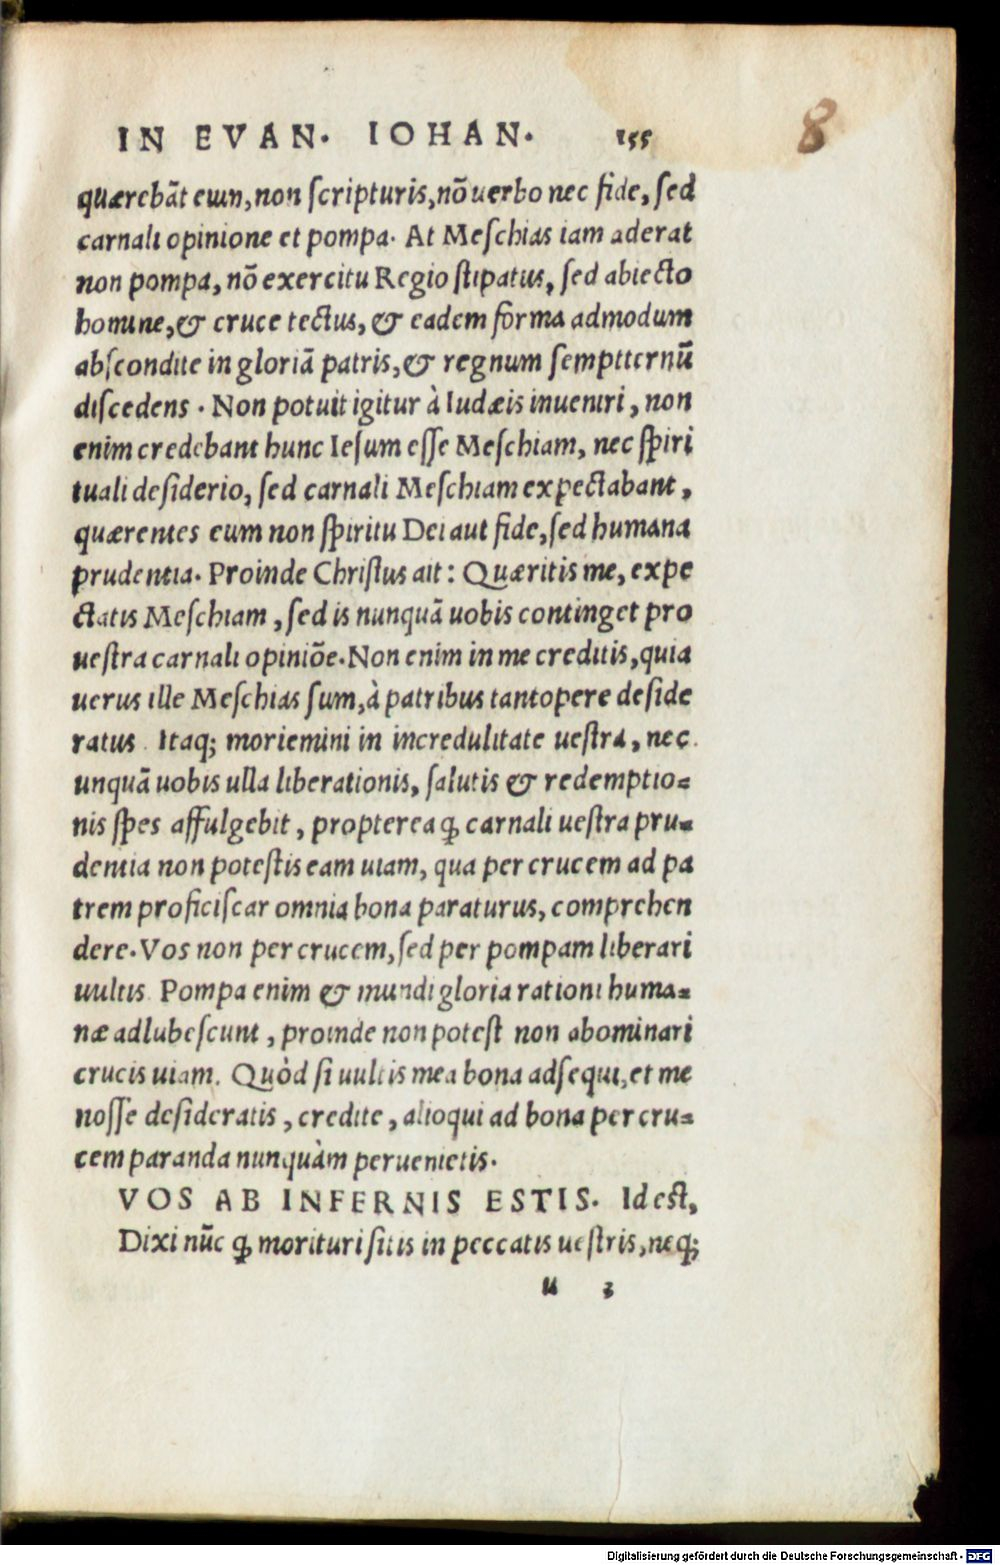 IN EVAN. IOHAN. 155
8
quærebāt eum, non ſcripturis, nō uerbo nec fide, ſed
carnali opinione et pompa. At Meſchias iam aderat
non pompa, nō exercitu Regio ſtipatus, ſed abiecto
homine, & cruce tectus, & eadem forma admodum
abſcondite in gloriā patris, & regnum ſempiternū
diſcedens. Non potuit igitur à Iudæis inueniri, non
enim credebant hunc Ieſum eſſe Meſchiam, nec ſpiri
tuali deſiderio, ſed carnali Meſchiam expectabant,
quærentes eum non ſpiritu Dei aut fide, ſed humana
prudentia. Proinde Chriſtus ait: Quæritis me, expe
ctatis Meſchiam, ſed is nunquā uobis continget pro
ueſtra carnali opiniōe. Non enim in me creditis, quia
uerus ille Meſchias ſum, à patribus tantopere deſide
ratus. Itaq; moriemini in incredulitate ueſtra, nec
unquā uobis ulla liberationis, ſalutis & redemptio-
nis ſpes affulgebit, propterea ꝙ carnali ueſtra pru-
dentia non poteſtis eam uiam, qua per crucem ad pa
trem proficiſcar omnia bona paraturus, comprehen
dere. Vos non per crucem, ſed per pompam liberari
uultis. Pompa enim & mundi gloria rationi huma-
næ adlubeſcunt, proinde non poteſt non abominari
crucis uiam. Quòd ſi uultis mea bona adſequi, et me
noſſe deſideratis, credite, alioqui ad bona per cru-
cem paranda nunquàm peruenietis.
VOS AB INFERNIS ESTIS. Id eſt,
Dixi nūc ꝙ morituri ſitis in peccatis ueſtris, neq;
u 3
Digitalisierung gefördert durch die Deutsche Forschungsgemeinschaft - DFG